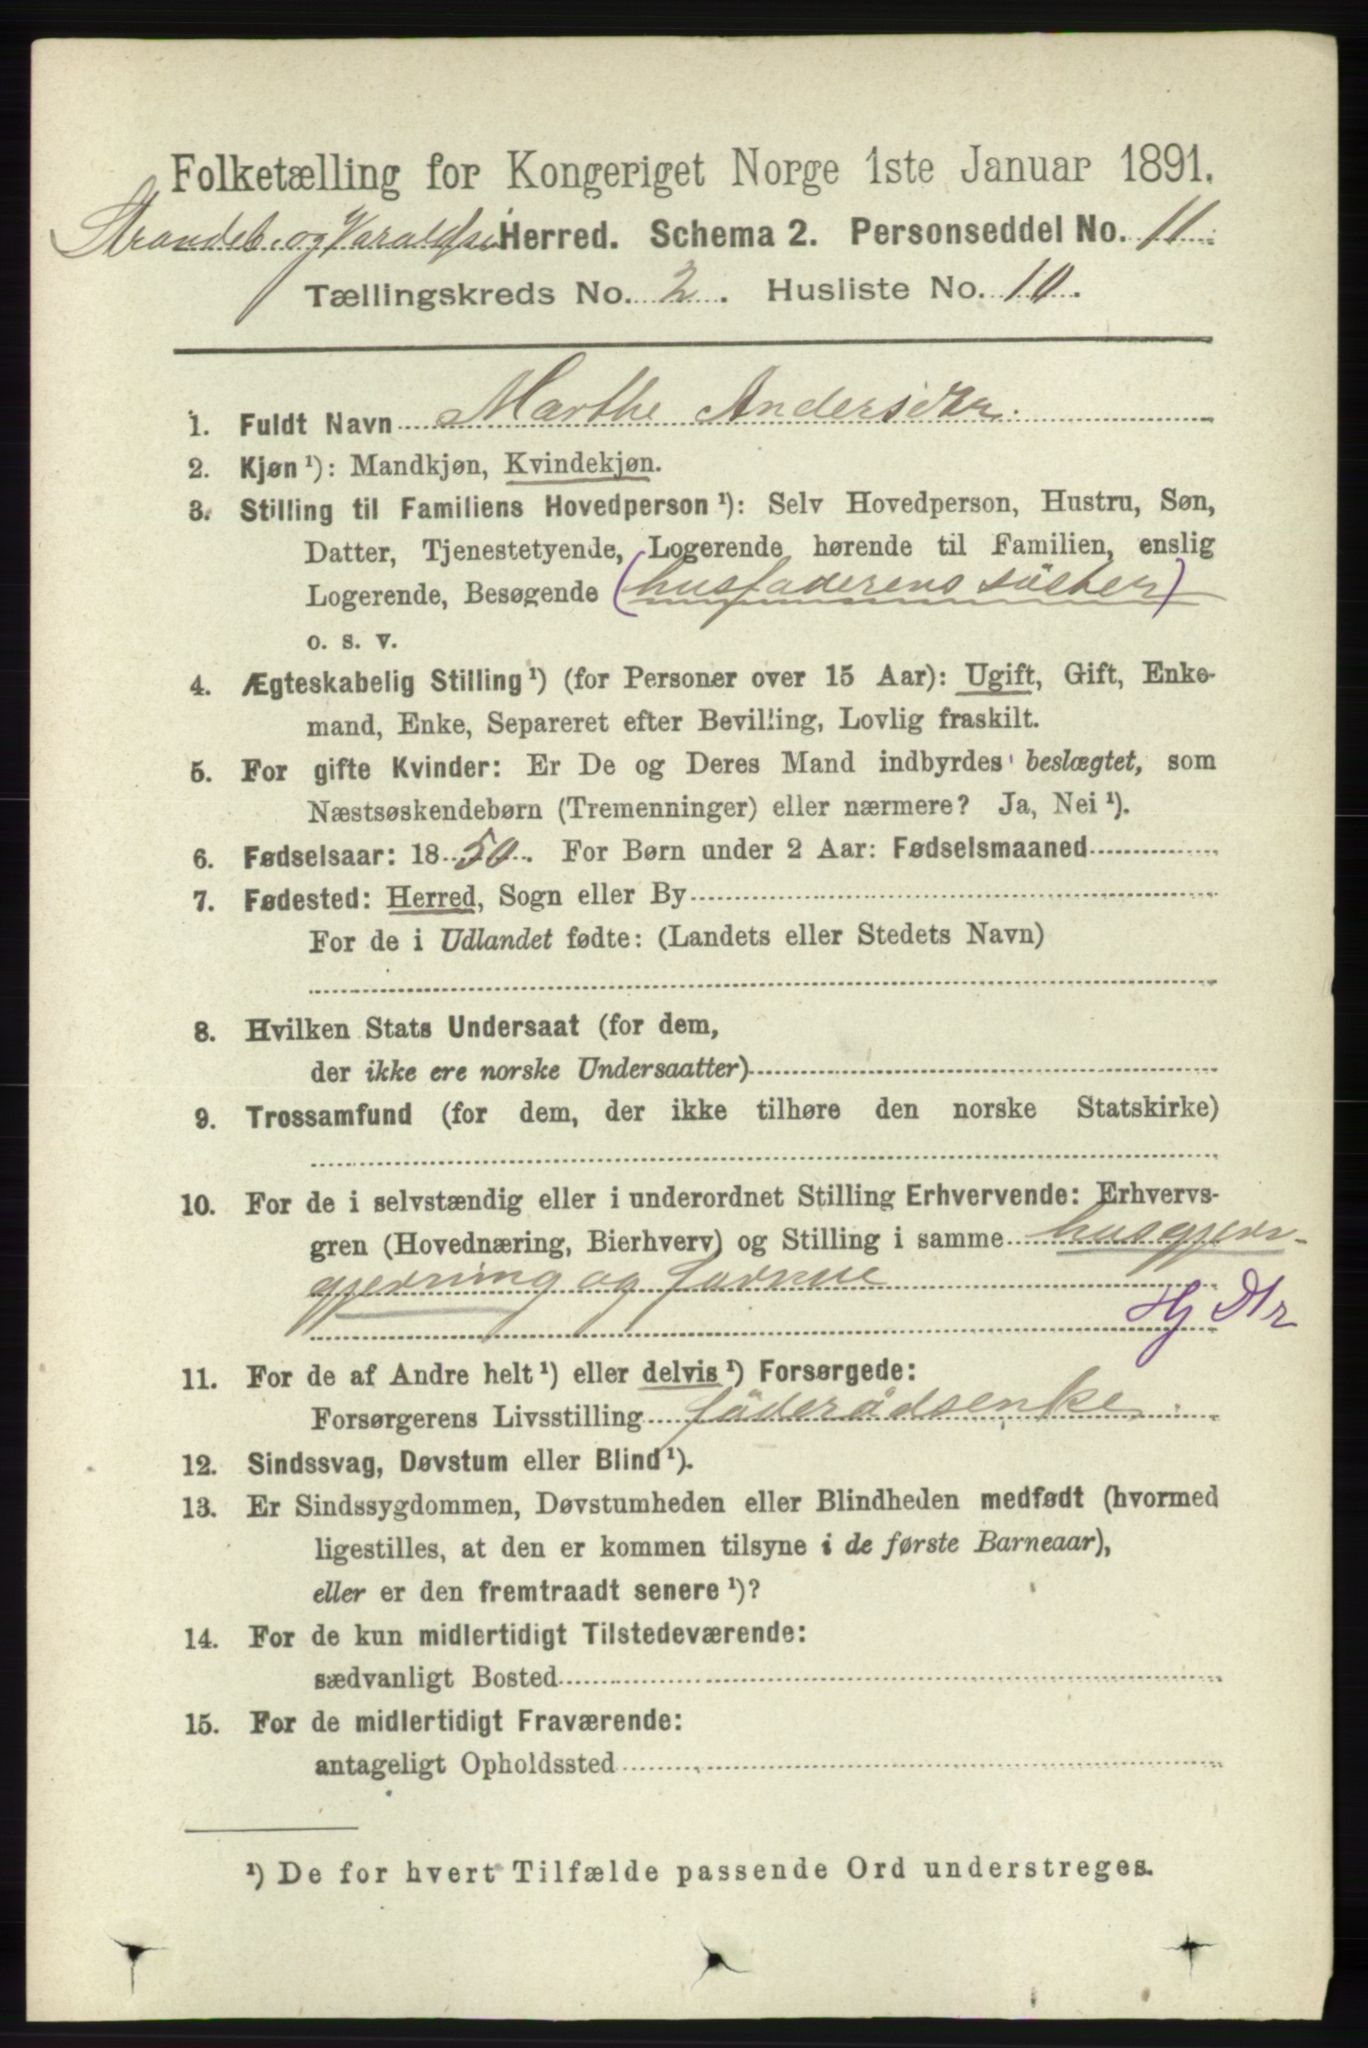 Folketælling for Kongeriget Norge 1ste Januar 1891.
Strandeb. og Varaldsø Herred. Schema 2. Personseddel No. 11
Tællingskreds No. 2. Husliste No. 10.
1. Fuldt Navn Marthe Andersdtr.
2. Kjøn ¹): Mandkjøn, Kvindekjøn.
3. Stilling til Familiens Hovedperson ¹): Selv Hovedperson, Hustru, Søn,
Datter, Tjenestetyende, Logerende hørende til Familien, enslig
Logerende, Besøgende (husfaderens süster)
o. s. v.
4. Ægteskabelig Stilling ¹) (for Personer over 15 Aar): Ugift, Gift, Enke-
mand, Enke, Separeret efter Bevilling, Lovlig fraskilt.
5. For gifte Kvinder: Er De og Deres Mand indbyrdes beslægtet, som
Næstsøskendebørn (Tremenninger) eller nærmere? Ja, Nei ¹).
6. Fødselsaar: 1850. For Børn under 2 Aar: Fødselsmaaned
7. Fødested: Herred, Sogn eller By
For de i Udlandet fødte: (Landets eller Stedets Navn)
8. Hvilken Stats Undersaat (for dem,
der ikke ere norske Undersaatter)
9. Trossamfund (for dem, der ikke tilhøre den norske Statskirke)
10. For de i selvstændig eller i underordnet Stilling Erhvervende: Erhvervs-
gren (Hovednæring, Bierhverv) og Stilling i samme husgjern-
gjerning og
Hj Dtr
11. For de af Andre helt ¹) eller delvis ¹) Forsørgede:
Forsørgerens Livsstilling föderådsenke
12. Sindssvag, Døvstum eller Blind ¹).
13. Er Sindssygdommen, Døvstumheden eller Blindheden medfødt (hvormed
ligestilles, at den er kommen tilsyne i de første Barneaar),
eller er den fremtraadt senere ¹)?
14. For de kun midlertidigt Tilstedeværende:
sædvanligt Bosted
15. For de midlertidigt Fraværende:
antageligt Opholdssted
¹) De for hvert Tilfælde passende Ord understreges.